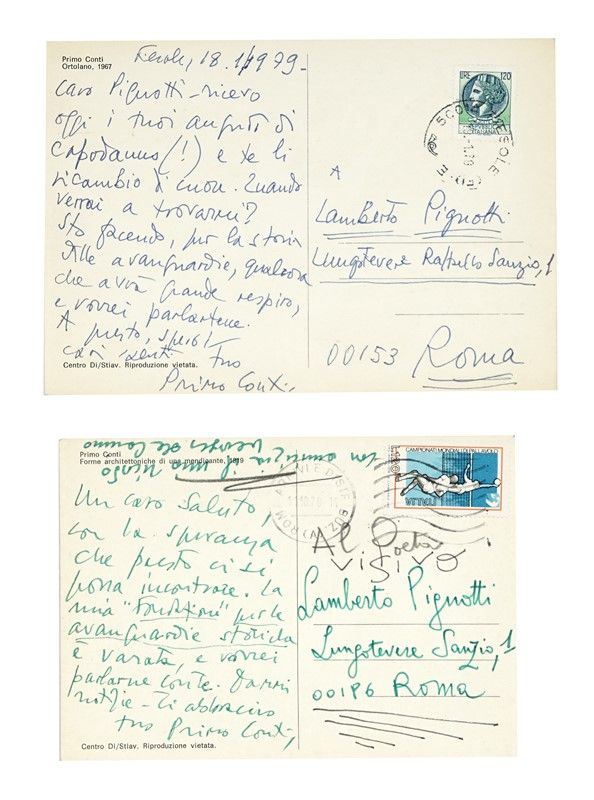 Primo Conti
Ortolano, 1967
Fiesole, 18.1.1979-
Caro Pignotti - ricevo
oggi i tuoi auguri di
Capodanno (!) e te li
ricambio di cuore. Quando
verrai a trovarmi?
Sto facendo, per la storia
delle avanguardie, qualcosa
che avrà grande respiro,
e vorrei parlartene.
A presto, spero!
cari saluti tuo
Primo Conti
Centro Di/Stiav. Riproduzione vietata.
LIRE 120
ITALIANA
FIESOLE
A
Lamberto Pignotti
Lungotevere Raffaello Sanzio, 1
00153 Roma
con amicizia
Primo Conti
Forme architettoniche di una mendicante, 1919
Un caro saluto,
con la speranza
che presto ci si
possa incontrare. La
mia "Fondazione" per le
avanguardie storiche
è varata, e vorrei
parlarne con te. Dammi
notizie - Ti abbraccio
tuo Primo Conti,
Centro Di/Stiav. Riproduzione vietata.
CAMPIONATI MONDIALI DI PALLAVOLO
ITALIA
Al Poeta
VISIVO
Lamberto Pignotti
Lungotevere Sanzio, 1
00196 Roma